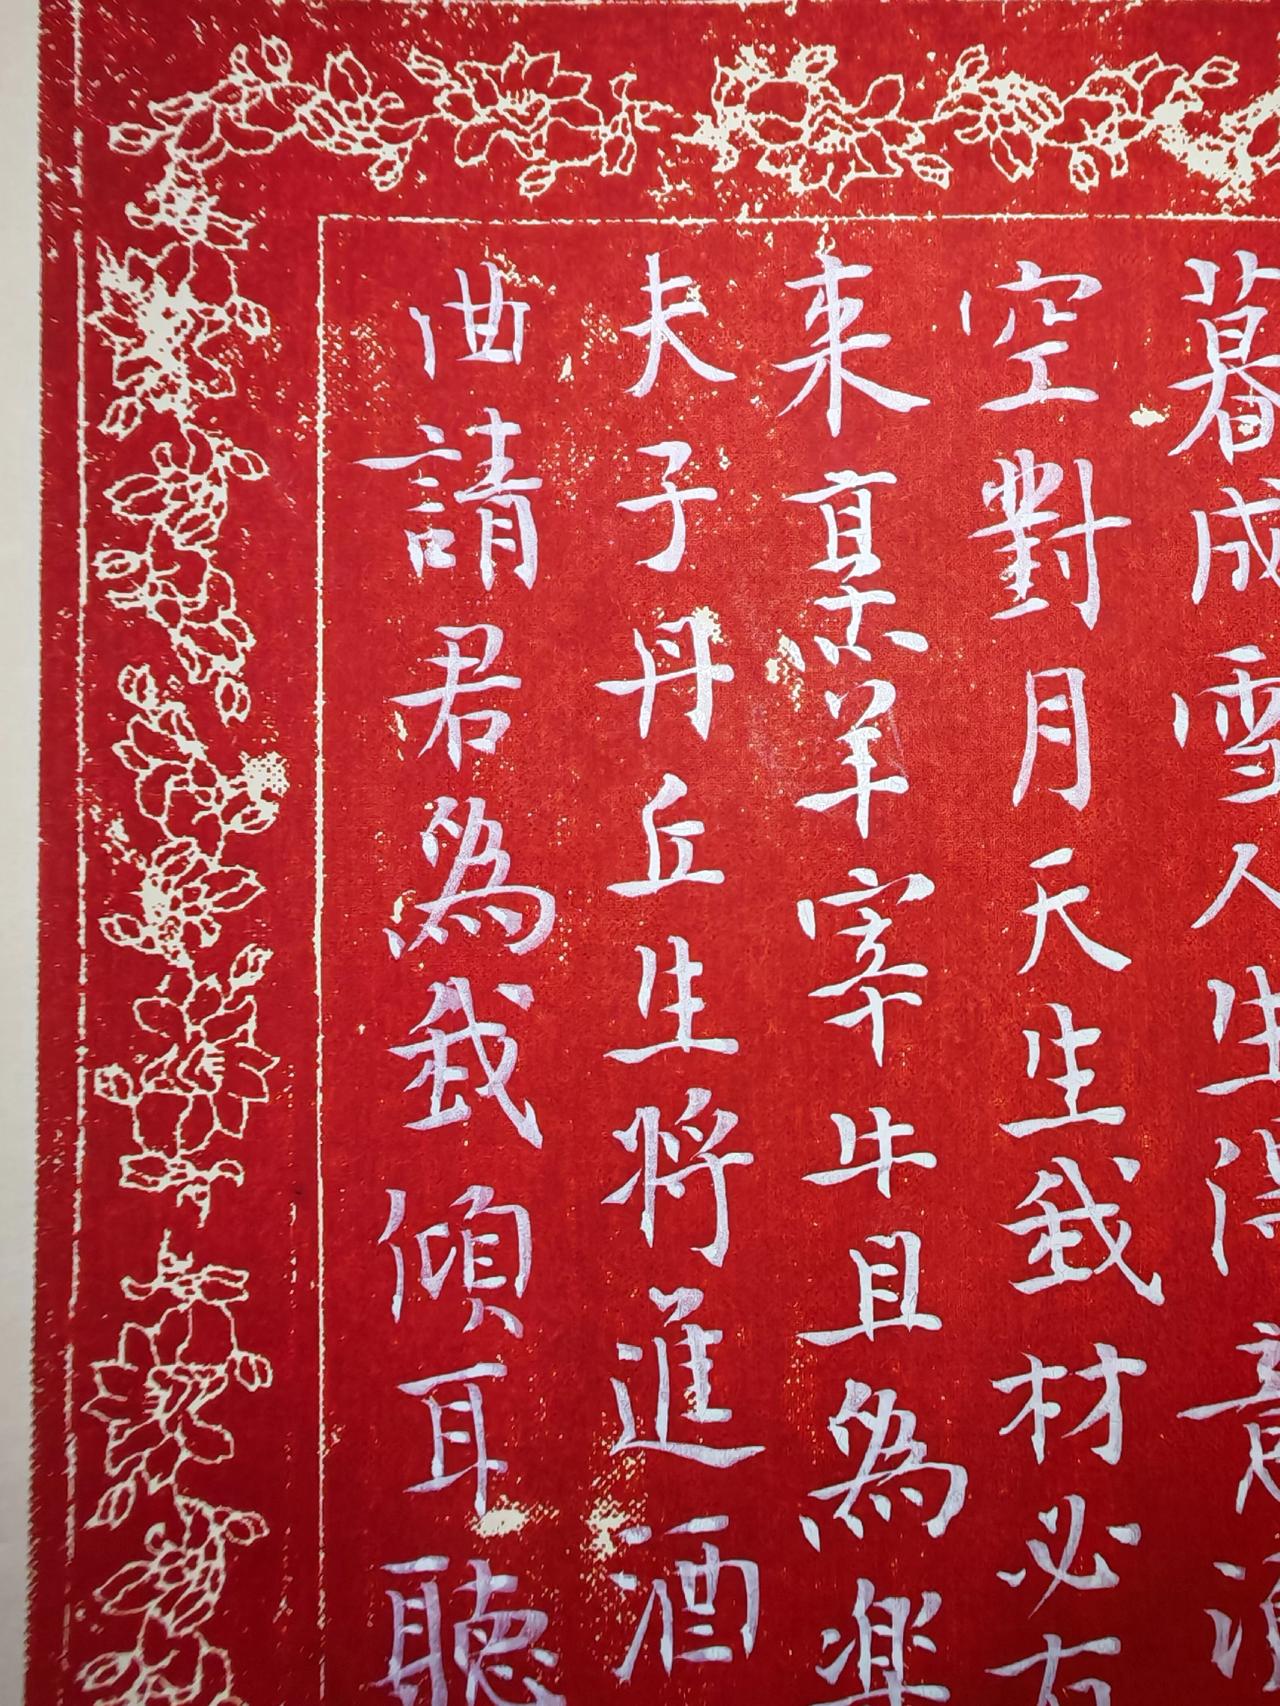 暮成雪人生得意
空對月天生我材必有
来烹羊宰牛且爲楽
夫子丹丘生将進酒
曲請君爲我傾耳聽